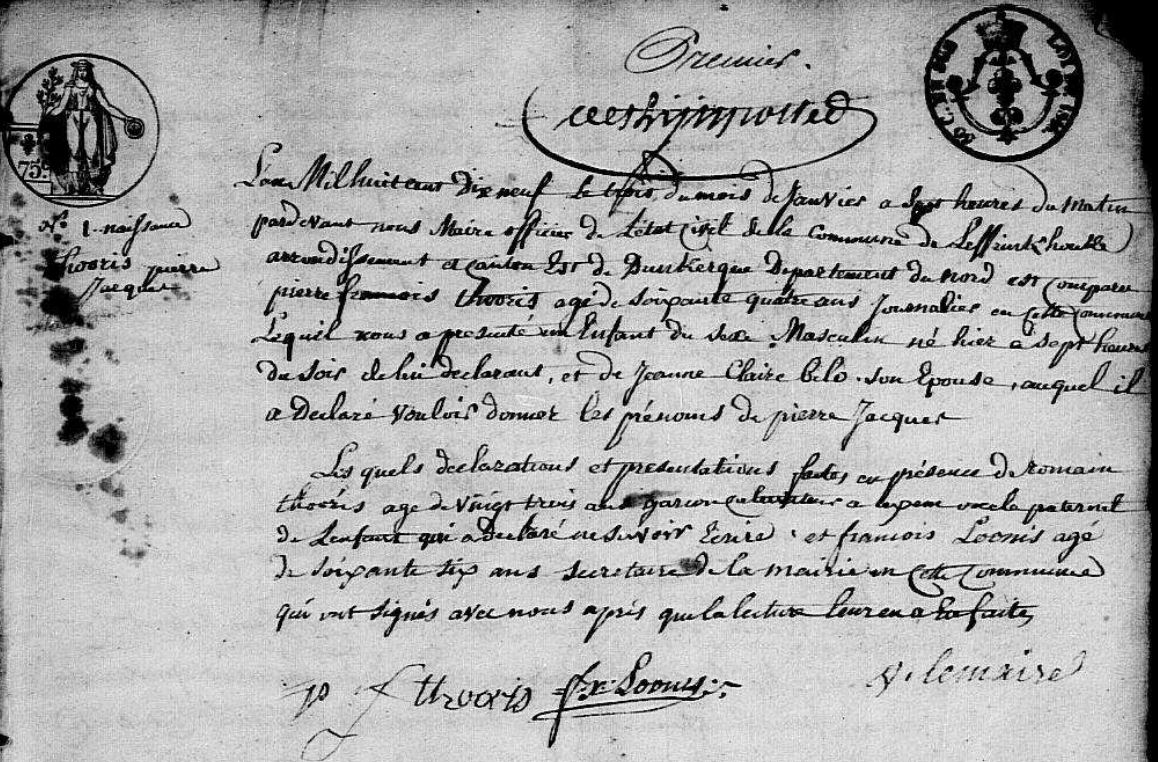 Premier.
75c
N.º 1. naissance
thooris pierre
Jacques
L'an Mil huit cent Dix neuf le trois du mois de Janvier a sept heures du Matin
pardevant nous Maire officier de L'état Civil de la Commune de Leffrinckhoucke
arrondissement et canton Est de Dunkerque Département du nord est comparu
pierre francois thooris agé de soixante quatre ans Journalier en cette Commune
Lequil nous a presenté un Enfant du sexe Masculin né hier a sept heures
du soir de lui declarant, et de Jeanne Claire belo son Epouse, auquel il
a Declaré vouloir donner les prénoms de pierre Jacques
Les quels declarations et presentations faites en présence de romain
thooris agé de vingt trois ans garçon a uxem oncle paternel
de L'enfant qui a declaré ne savoir Ecrire. et francois Loonis agé
de soixante six ans secretaire de la mairie en cette Commune
qui ont signés avec nous après que la lecture leur en a faite
p f thooris fx Loonis
V. lemaire